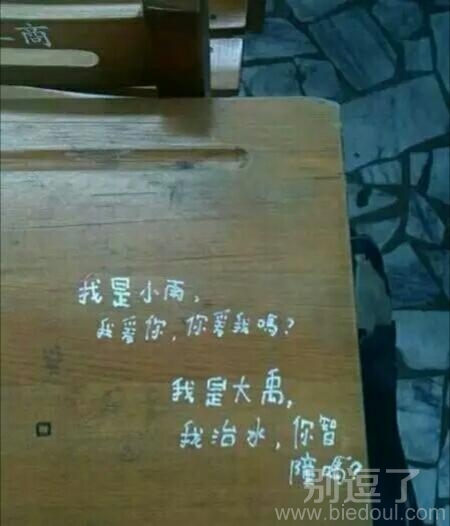 二商
我是小雨,
我爱你,你爱我嗎?
我是大禹,
我治水,你智
障嗎?
别逗了
www.biedoul.com